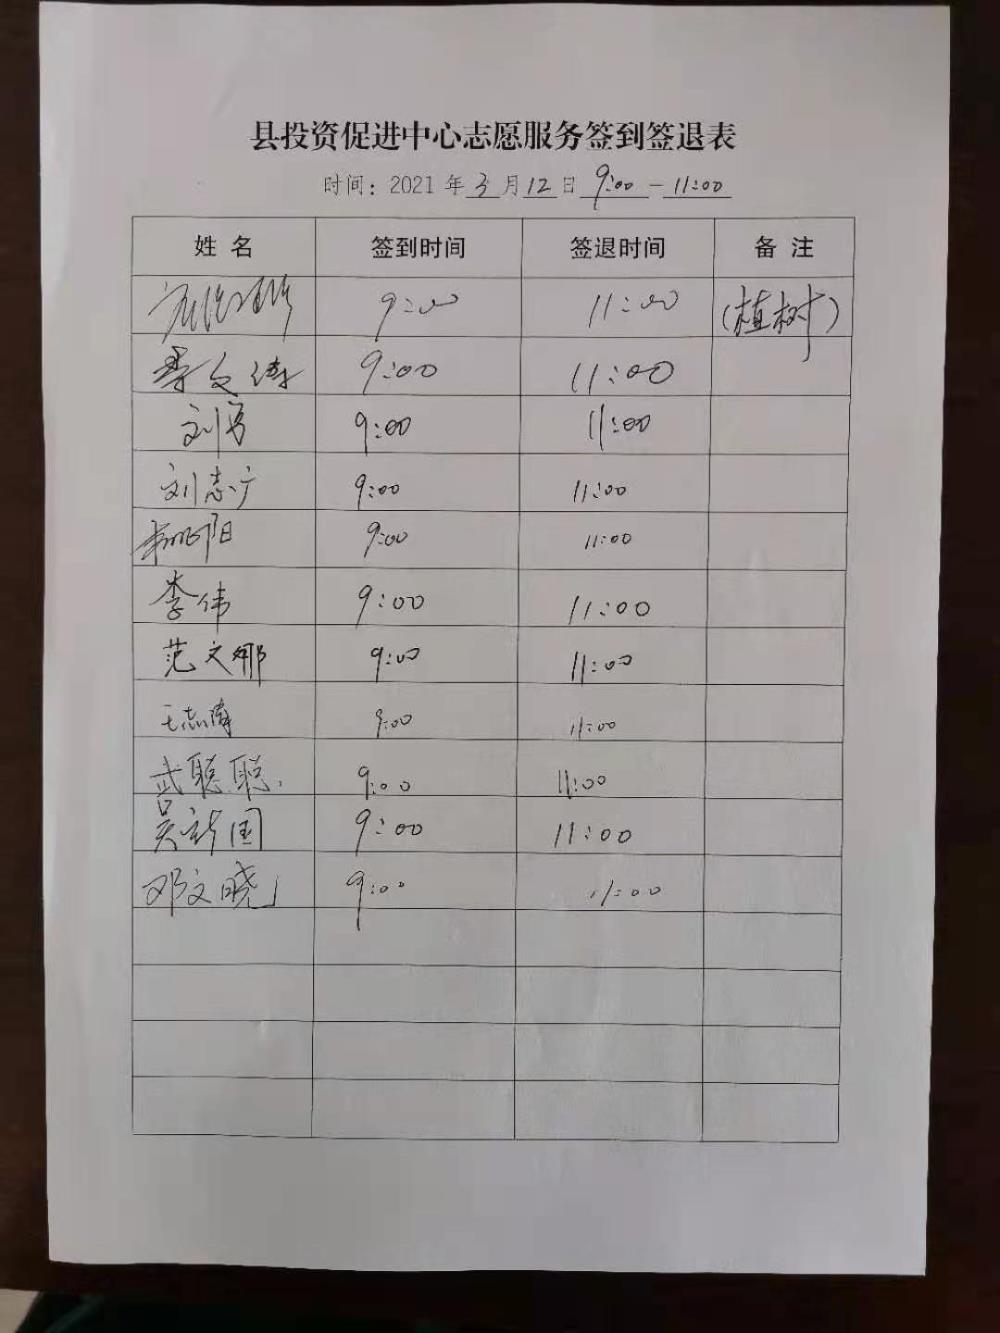 县投资促进中心志愿服务签到签退表
时间：2021年3月12日 9:00-11:00
姓名 签到时间 签退时间 备注
9:00 11:00 (植树)
文 9:00 11:00
刘 9:00 11:00
刘志广 9:00 11:00
阳 9:00 11:00
李伟 9:00 11:00
范文娜 9:00 11:00
王志 9:00 11:00
武聪聪 9:00 11:00
吴新国 9:00 11:00
邓文晓 9:00 11:00